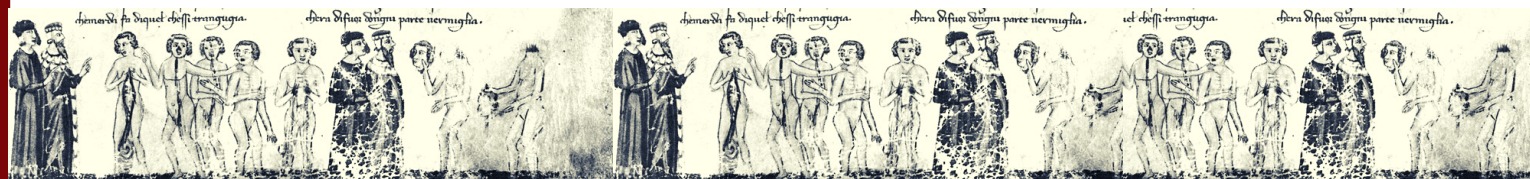 chemerda fa diquel chessi trangugia. chera difuor dongni parte uermiglia. chemerda fa diquel chessi trangugia. chera difuor dongni parte uermiglia. uel chessi trangugia. chera difuor dongni parte uermiglia.